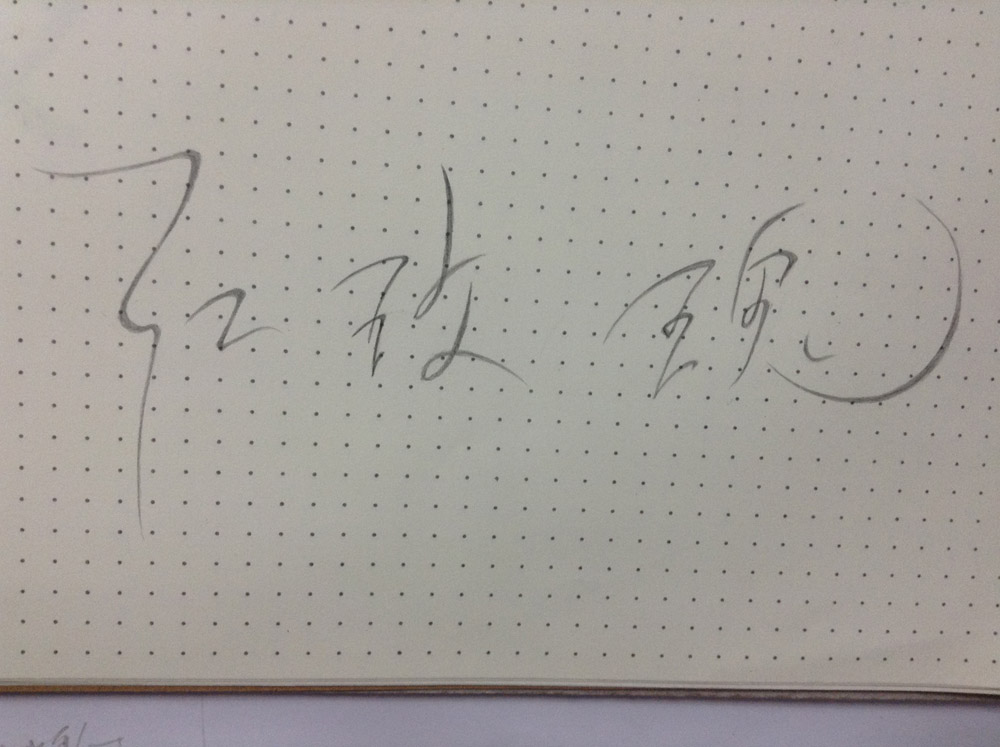 红玫瑰